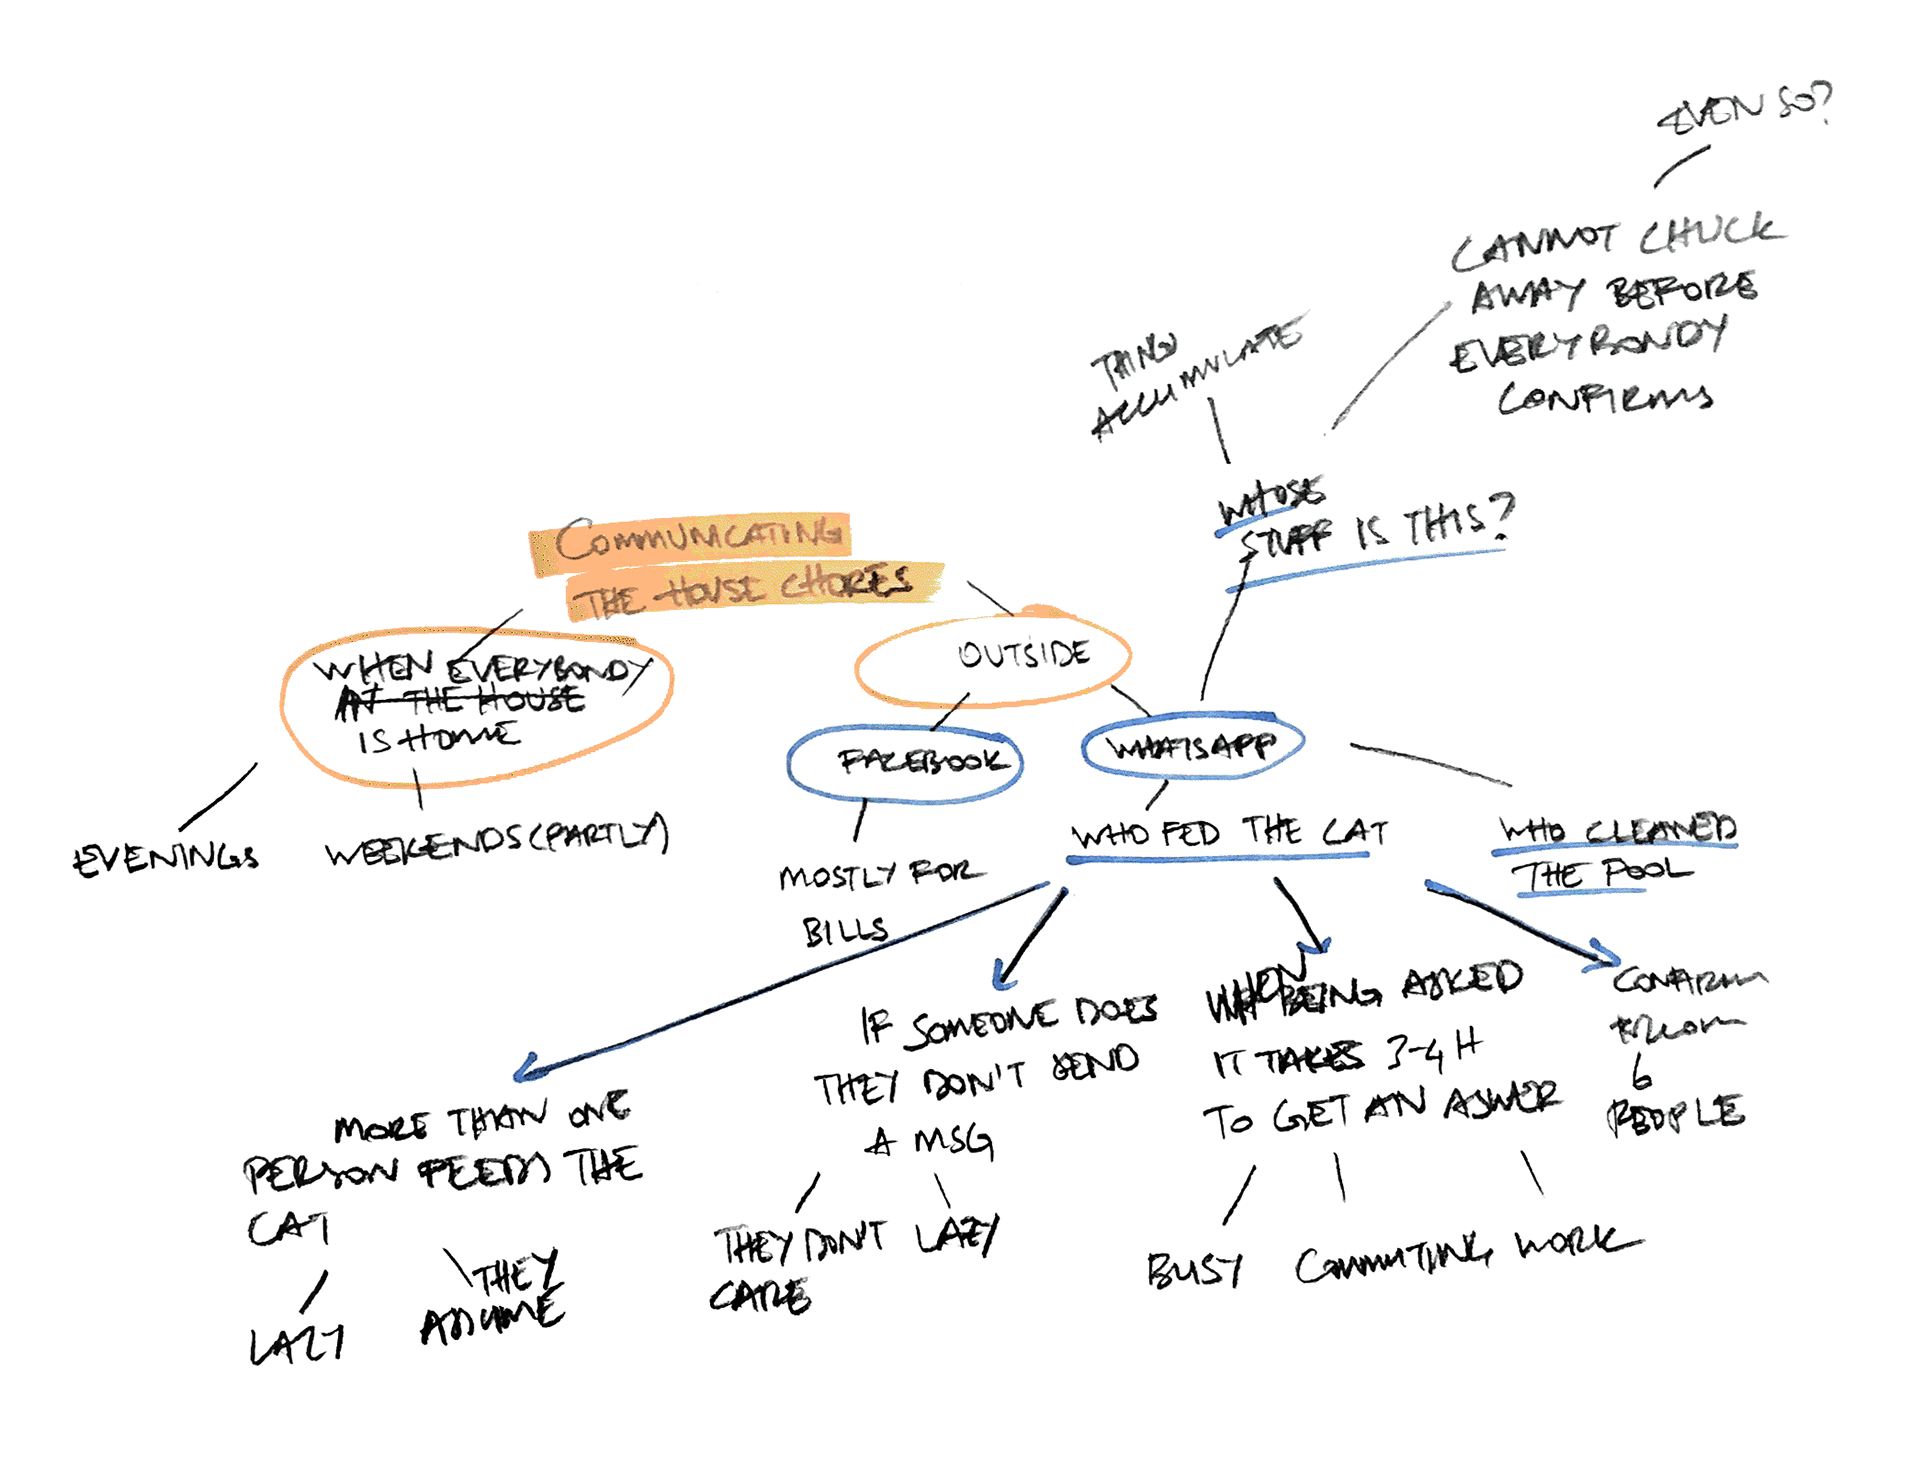 EVEN SO?
CANNOT CHUCK
AWAY BEFORE
EVERYBONDY
CONFIRMS
THINGS
ACCUMULATE
WHOSE
STUFF IS THIS?
COMMUNICATING
THE HOUSE CHORES
WHEN EVERYBONDY
AT THE HOUSE
IS HOME
OUTSIDE
FACEBOOK
WHATSAPP
EVENINGS
WEEKENDS (PARTLY)
MOSTLY FOR
BILLS
WHO FED THE CAT
WHO CLEANED
THE POOL
MORE THAN ONE
PERSON FEEDS THE
CAT
LAZY
THEY
ASSUME
IF SOMEONE DOES
THEY DON'T SEND
A MSG
THEY DON'T
CARE
LAZY
WHEN BEING ASKED
IT TAKES 3-4 H
TO GET AN ASWER
BUSY
COMMUTING
WORK
CONFIRM
FROM
6
PEOPLE